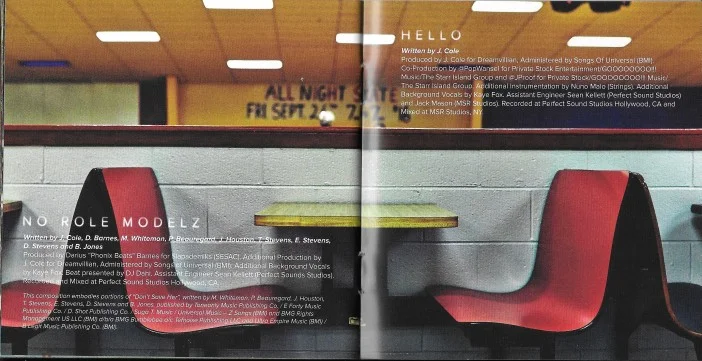 ALL NIGHT SKATE
FRI SEPT.
NO ROLE MODELZ
Written by J. Cole, D. Barnes, M. Whitemon, P. Beauregard, J. Houston, T. Stevens, E. Stevens,
D. Stevens and B. Jones
Produced by Darius "Phonix Beats" Barnes for Slapademiks (SESAC). Additional Production by
J. Cole for Dreamvillian, Administered by Songs of Universal (BMI). Additional Background Vocals
by Kaye Fox. Beat presented by DJ Dahi. Assistant Engineer Sean Kellett (Perfect Sound Studios).
Recorded and Mixed at Perfect Sound Studios Hollywood, CA.
This composition embodies portions of "Don't Save Her", written by M. Whitemon, P. Beauregard, J. Houston,
T. Stevens, E. Stevens, D. Stevens and B. Jones, published by Tenwenty Music Publishing Co. / E Forty Music
Publishing Co. / D. Shot Publishing Co. / Suga T. Music / Universal Music – Z Songs (BMI) and BMG Rights
Management US LLC (BMI) d/b/a BMG Bumblebee o/c Ultra Empire Music (BMI) /
B Legit Music Publishing Co. (BMI).
HELLO
Written by J. Cole
Produced by J. Cole for Dreamvillian, Administered by Songs Of Universal (BMI)
Co-Production by @PopWansel for Private Stock Entertainment/
Music/The Starr Island Group and #JProof for Private Stock/ Music/
The Starr Island Group. Additional Instrumentation by Nuno Malo (Strings). Additional
Background Vocals by Kaye Fox. Assistant Engineer Sean Kellett (Perfect Sound Studios)
and Jack Mason (MSR Studios). Recorded at Perfect Sound Studios Hollywood, CA and
Mixed at MSR Studios, NY.